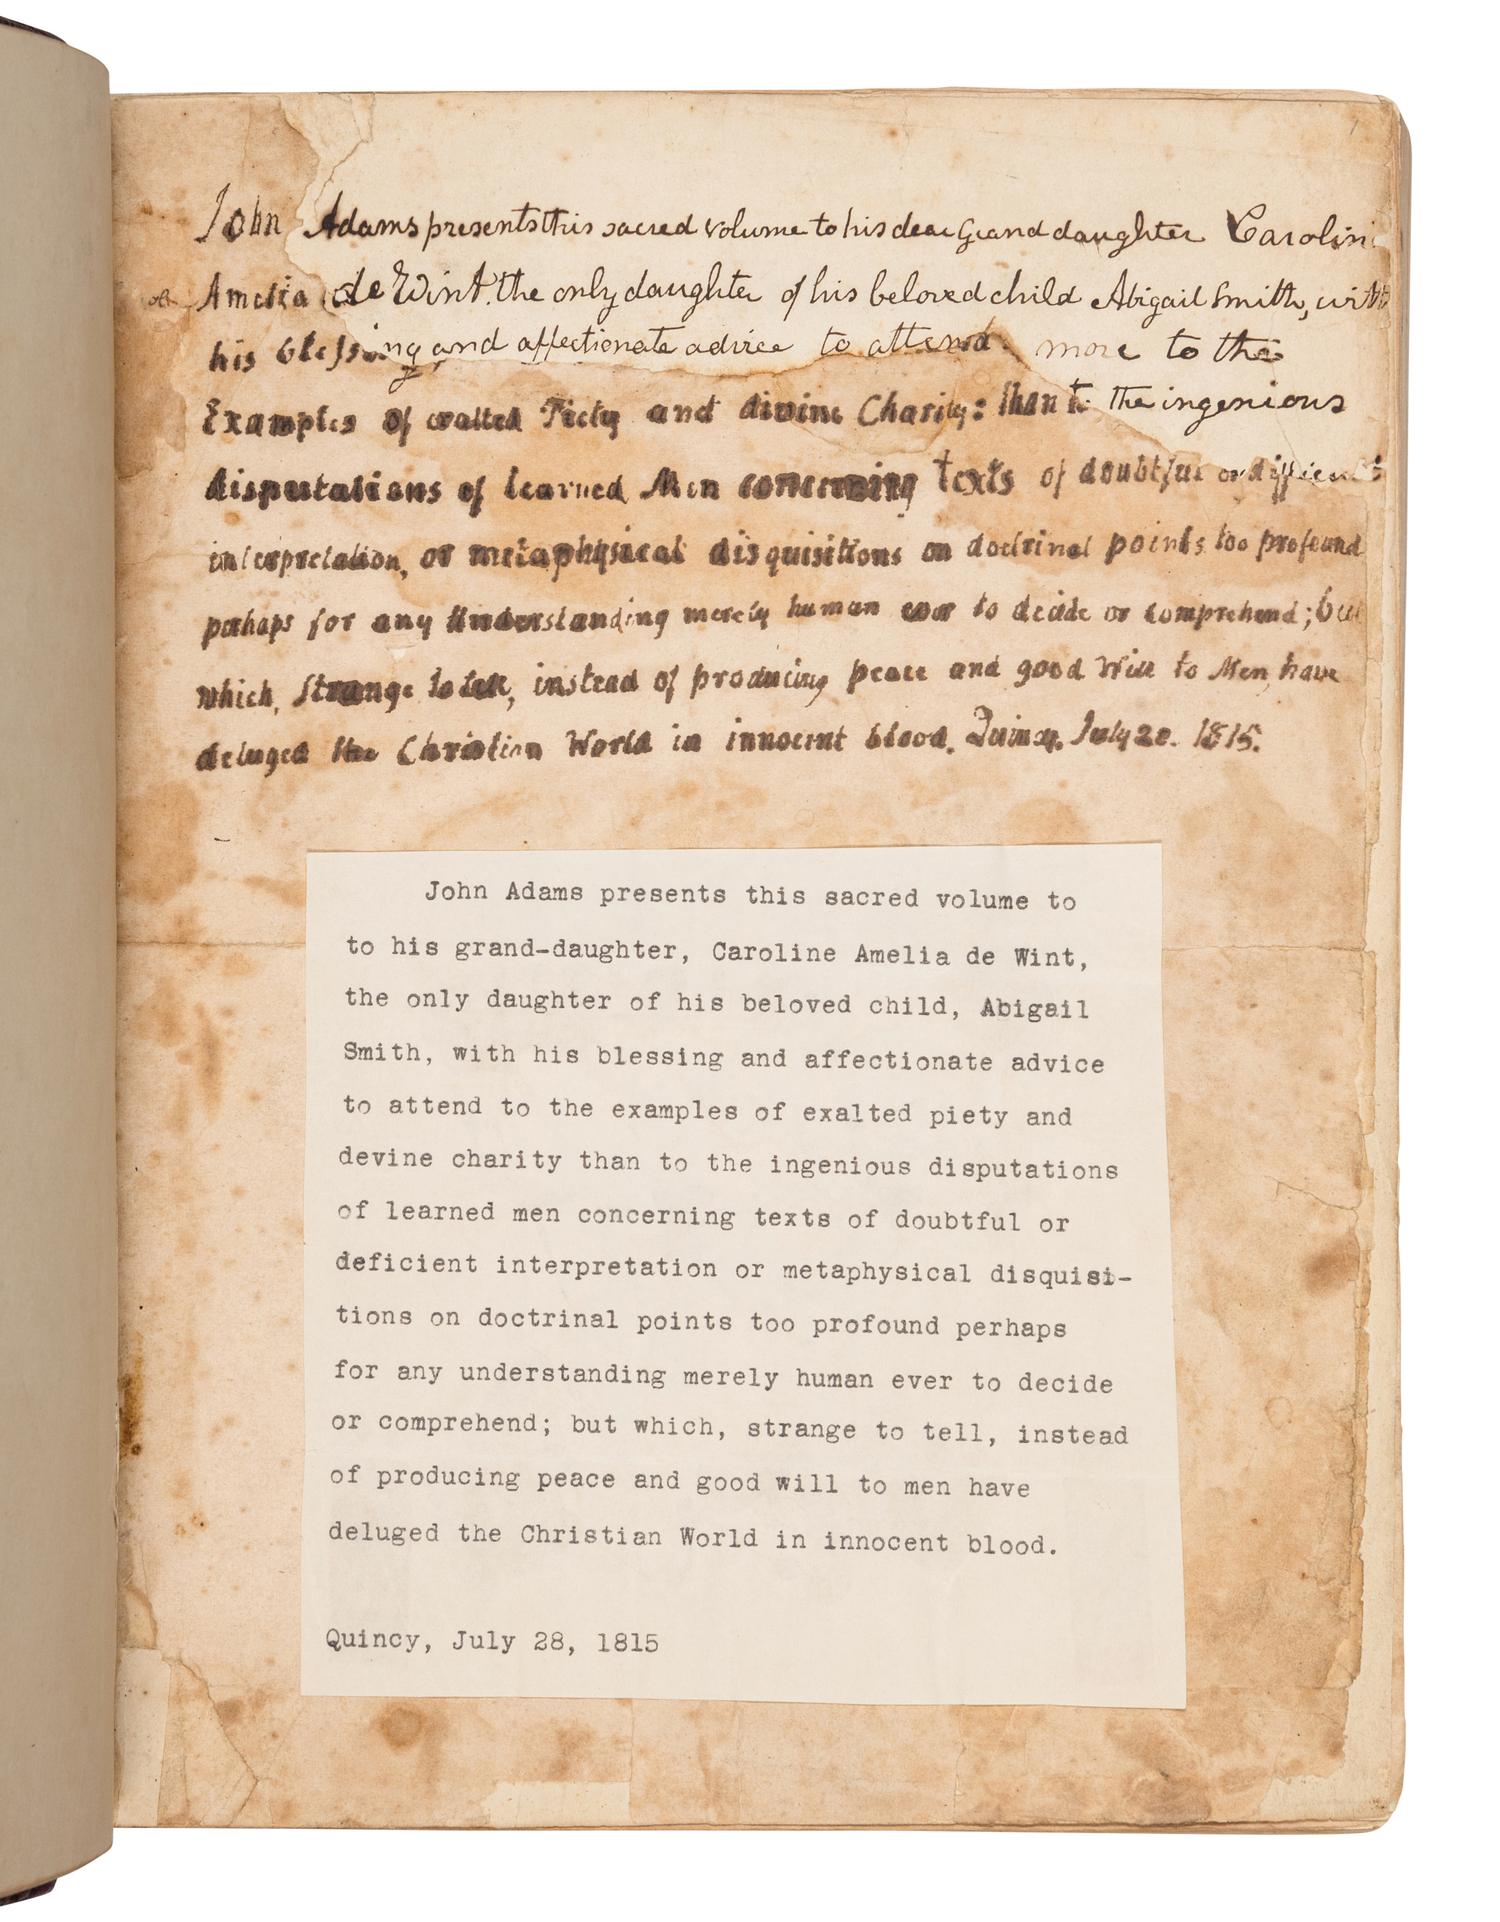 John Adams presents this sacred volume to his dear Grand daughter Carolin
Amelia de Wint. the only daughter of his beloved child Abigail Smith, with
his blessing and affectionate advice to attend more to the
Examples of exalted Piety and divine Charity: than to the ingenious
disputations of learned Men concerning texts of doubtful or difficult
interpretation, or metaphysical disquisitions on doctrinal points too profound
perhaps for any Understanding merely human ever to decide or comprehend; but
which, strange to tell, instead of producing peace and good Will to Men, have
deluged the Christian World in innocent blood. Quincy. July 28. 1815.
John Adams presents this sacred volume to
to his grand-daughter, Caroline Amelia de Wint,
the only daughter of his beloved child, Abigail
Smith, with his blessing and affectionate advice
to attend to the examples of exalted piety and
devine charity than to the ingenious disputations
of learned men concerning texts of doubtful or
deficient interpretation or metaphysical disquisi-
tions on doctrinal points too profound perhaps
for any understanding merely human ever to decide
or comprehend; but which, strange to tell, instead
of producing peace and good will to men have
deluged the Christian World in innocent blood.
Quincy, July 28, 1815